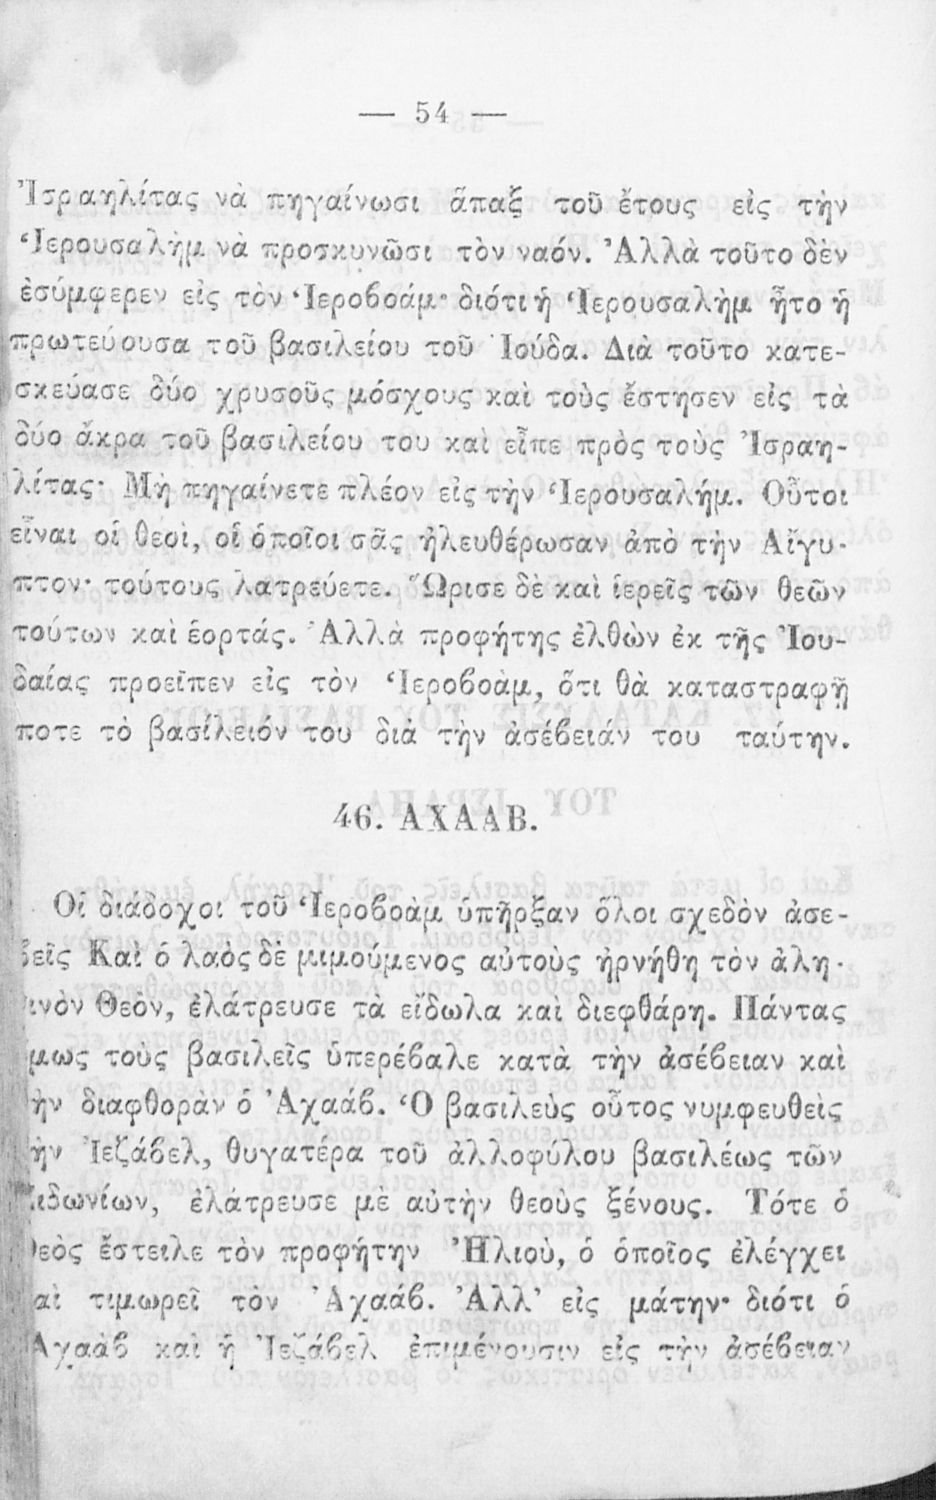 — 54 —
Ἰσραηλίτας νὰ πηγαίνωσι ἅπαξ τοῦ ἔτους εἰς τὴν
Ἱερουσαλὴμ νὰ προσκυνῶσι τὸν ναόν. Ἀλλὰ τοῦτο δὲν
ἐσύμφερεν εἰς τὸν Ἱεροβοάμ· διότι ἡ Ἱερουσαλὴμ ἦτο ἡ
πρωτεύουσα τοῦ βασιλείου τοῦ Ἰούδα. Διὰ τοῦτο κατε-
σκεύασε δύο χρυσοῦς μόσχους καὶ τοὺς ἔστησεν εἰς τὰ
δύο ἄκρα τοῦ βασιλείου του καὶ εἶπε πρὸς τοὺς Ἰσραη-
λίτας· Μὴ πηγαίνετε πλέον εἰς τὴν Ἱερουσαλήμ. Οὗτοι
εἶναι οἱ θεοὶ, οἱ ὁποῖοι σᾶς ἠλευθέρωσαν ἀπὸ τὴν Αἴγυ-
πτον· τούτους λατρεύετε. Ὥρισε δὲ καὶ ἱερεῖς τῶν θεῶν
τούτων καὶ ἑορτάς. Ἀλλὰ προφήτης ἐλθὼν ἐκ τῆς Ἰου-
δαίας προεῖπεν εἰς τὸν Ἱεροβοὰμ, ὅτι θὰ καταστραφῇ
ποτε τὸ βασίλειόν του διὰ τὴν ἀσέβειάν του ταύτην.
46. ΑΧΑΑΒ.
Οἱ διάδοχοι τοῦ Ἱεροβοὰμ ὑπῆρξαν ὅλοι σχεδὸν ἀσε-
βεῖς Καὶ ὁ λαὸς δὲ μιμούμενος αὐτοὺς ἠρνήθη τὸν ἀλη-
θινὸν Θεὸν, ἐλάτρευσε τὰ εἴδωλα καὶ διεφθάρη. Πάντας
ὅμως τοὺς βασιλεῖς ὑπερέβαλε κατὰ τὴν ἀσέβειαν καὶ
τὴν διαφθορὰν ὁ Ἀχαάβ. Ὁ βασιλεὺς οὗτος νυμφευθεὶς
τὴν Ἰεζάβελ, θυγατέρα τοῦ ἀλλοφύλου βασιλέως τῶν
Σιδωνίων, ἐλάτρευσε μὲ αὐτὴν θεοὺς ξένους. Τότε ὁ
Θεὸς ἔστειλε τὸν προφήτην Ἠλιοὺ, ὁ ὁποῖος ἐλέγχει
καὶ τιμωρεῖ τὸν Ἀχαάβ. Ἀλλ' εἰς μάτην· διότι ὁ
Ἀχαὰβ καὶ ἡ Ἰεζάβελ ἐπιμένουσιν εἰς τὴν ἀσέβειαν